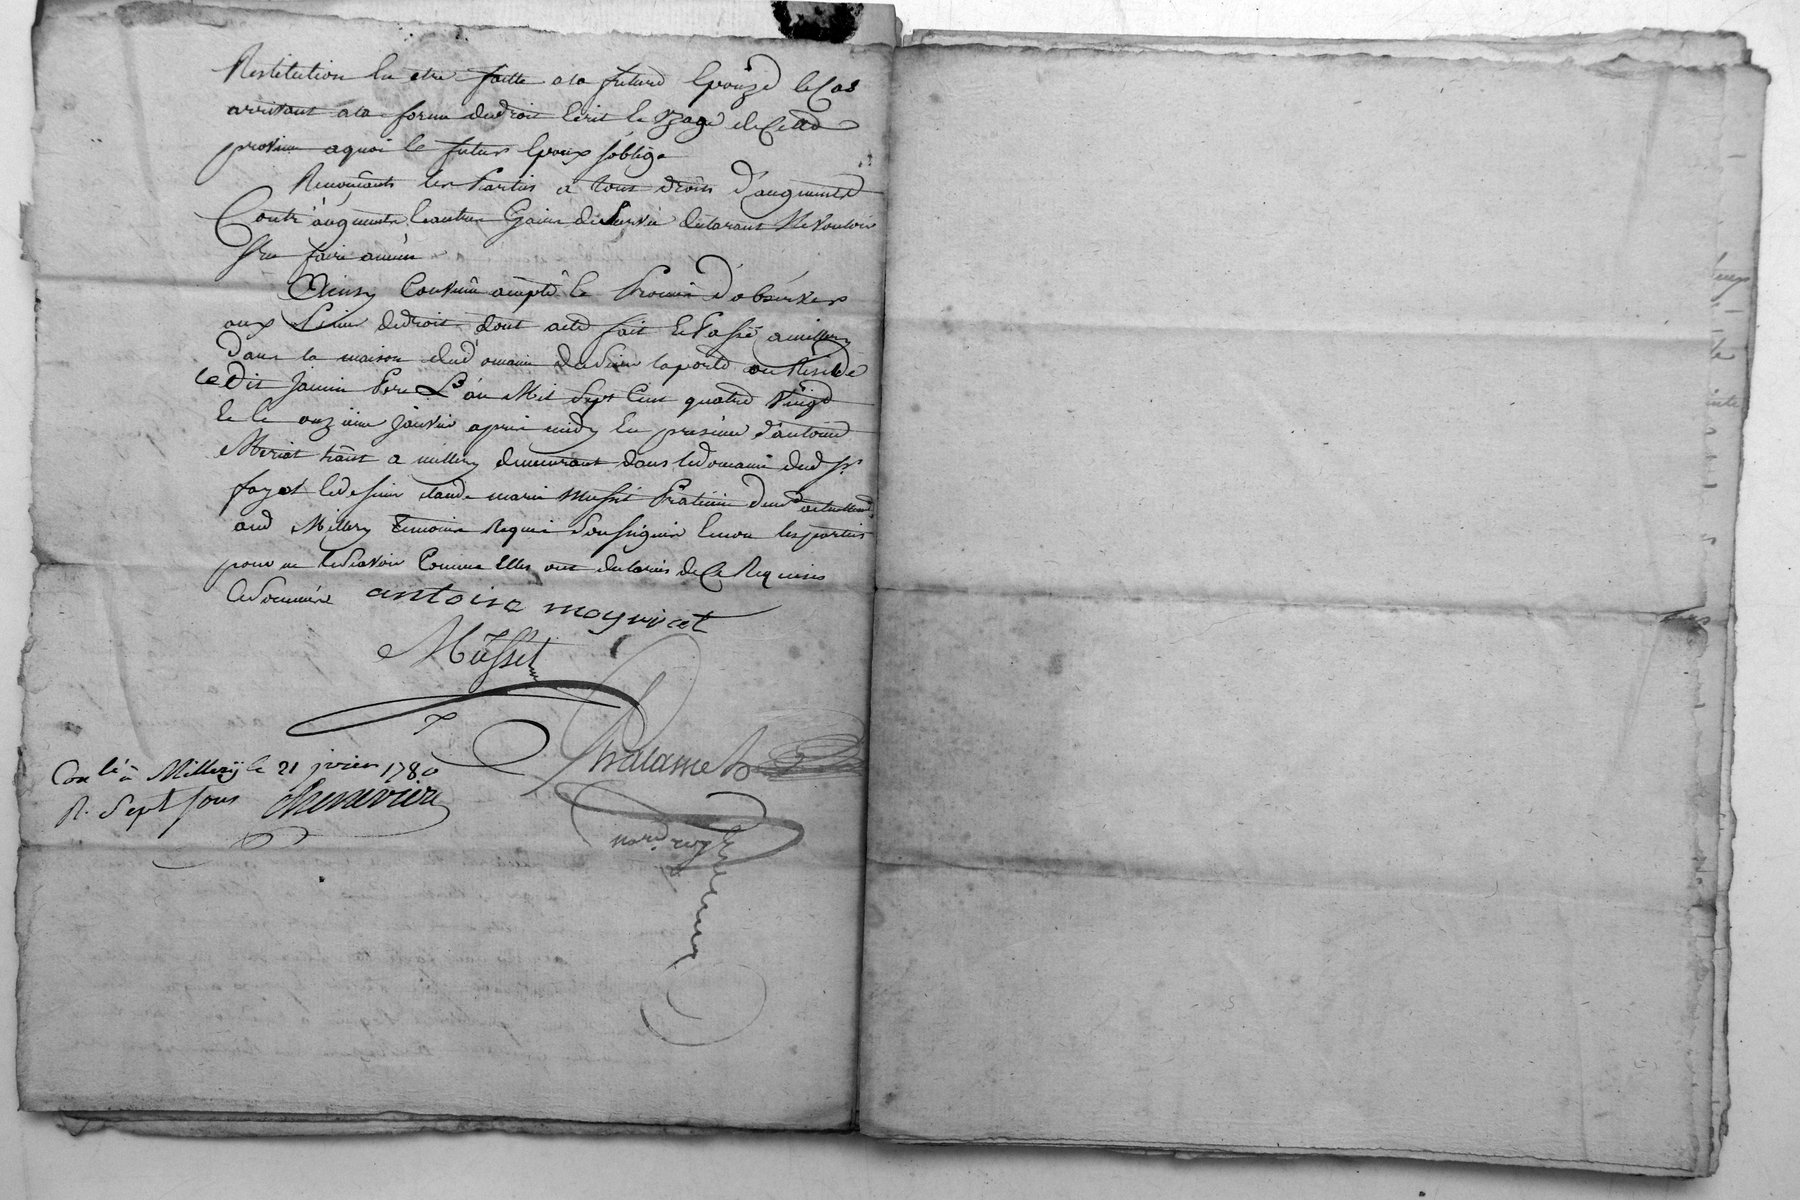 Restitution En etre faitte a la future Epouze le Cas
arrivant a la forme dudroit Ecrit le Uzage de Cette
province a quoi le futur Epoux soblige
Renonçants les Parties a tous droits d'augment
Contr'augment Et autres Gains de survie declarant Ne vouloir
sen faire aucun
Ainsy Convenû accepté Et Promis d'observer
aux peine de droit dont acte fait Et Passé a millery
Dans la maison du domaine du sieur laporte ou Reside
Ledit Janin Pere L'an Mil Sept Cent quatre Vingt
Et le onzième Janvier apres midy En presence d'antoine
a millery demeurant dans le domaine dud Sr
fayot Et de sieur claude marie Musset Praticien demt actuellemt
aud Millery Temoins Requis Soussignés Et non les parties
pour ne le Savoir Comme Elles ont declarés de Ce Requises
Et Sommées antoine moyricet
Musset
Thalamet
Conlé à Millery le 21 jvier 1780
R. Sept sous Chenavier
nore royal